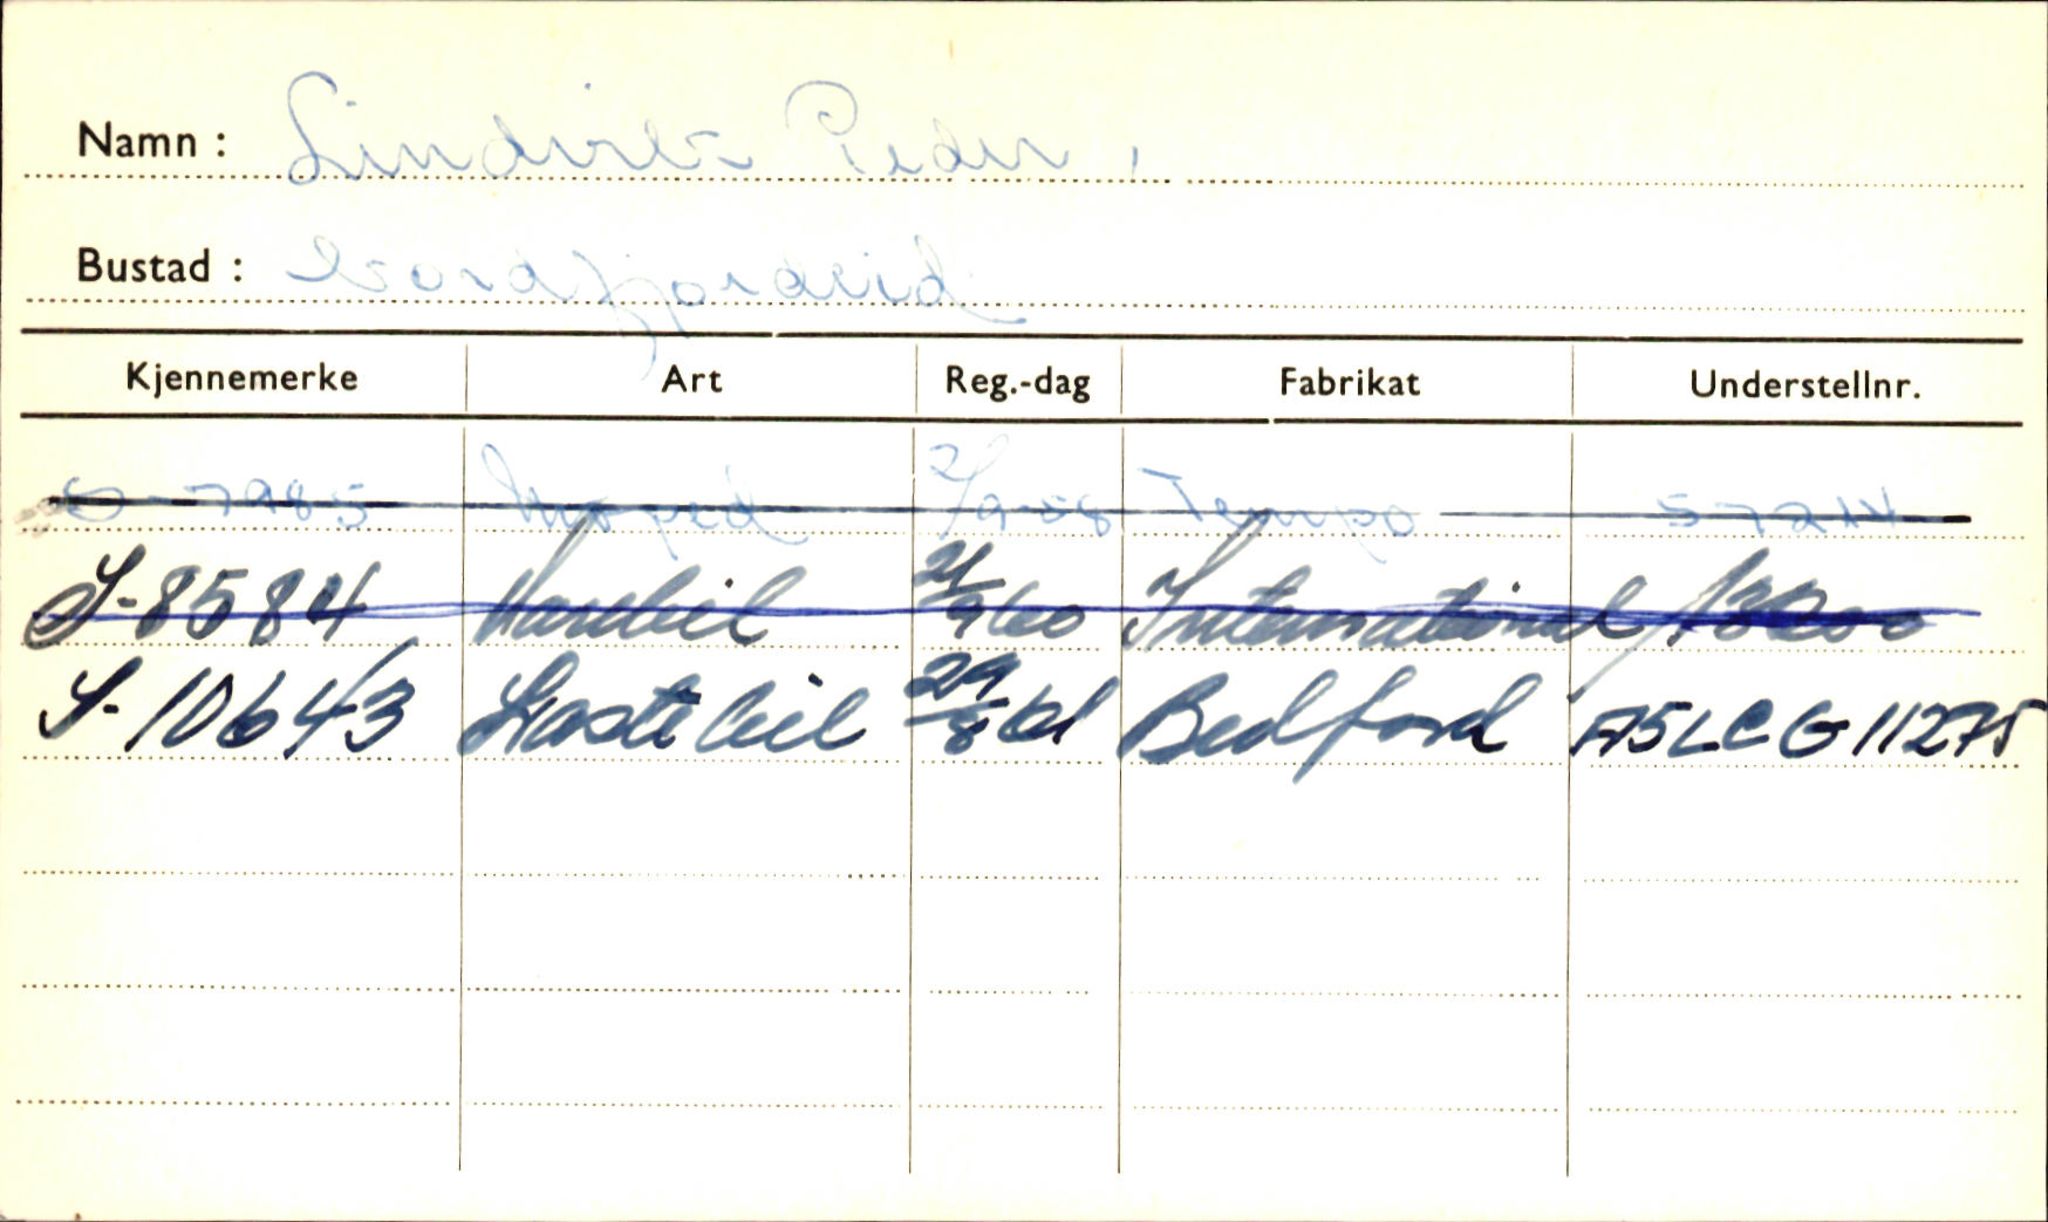 Namn: Lindvik Peder,
Bustad: Nordfjordeid
Kjennemerke Art Reg.-dag Fabrikat Understellnr.
S-7985 Moped 2/9-58 Tempo 57214
S-8584 Varebil 21/9 60 International
S-10643 Lastebil 29/8 61 Bedford A5LCG11275